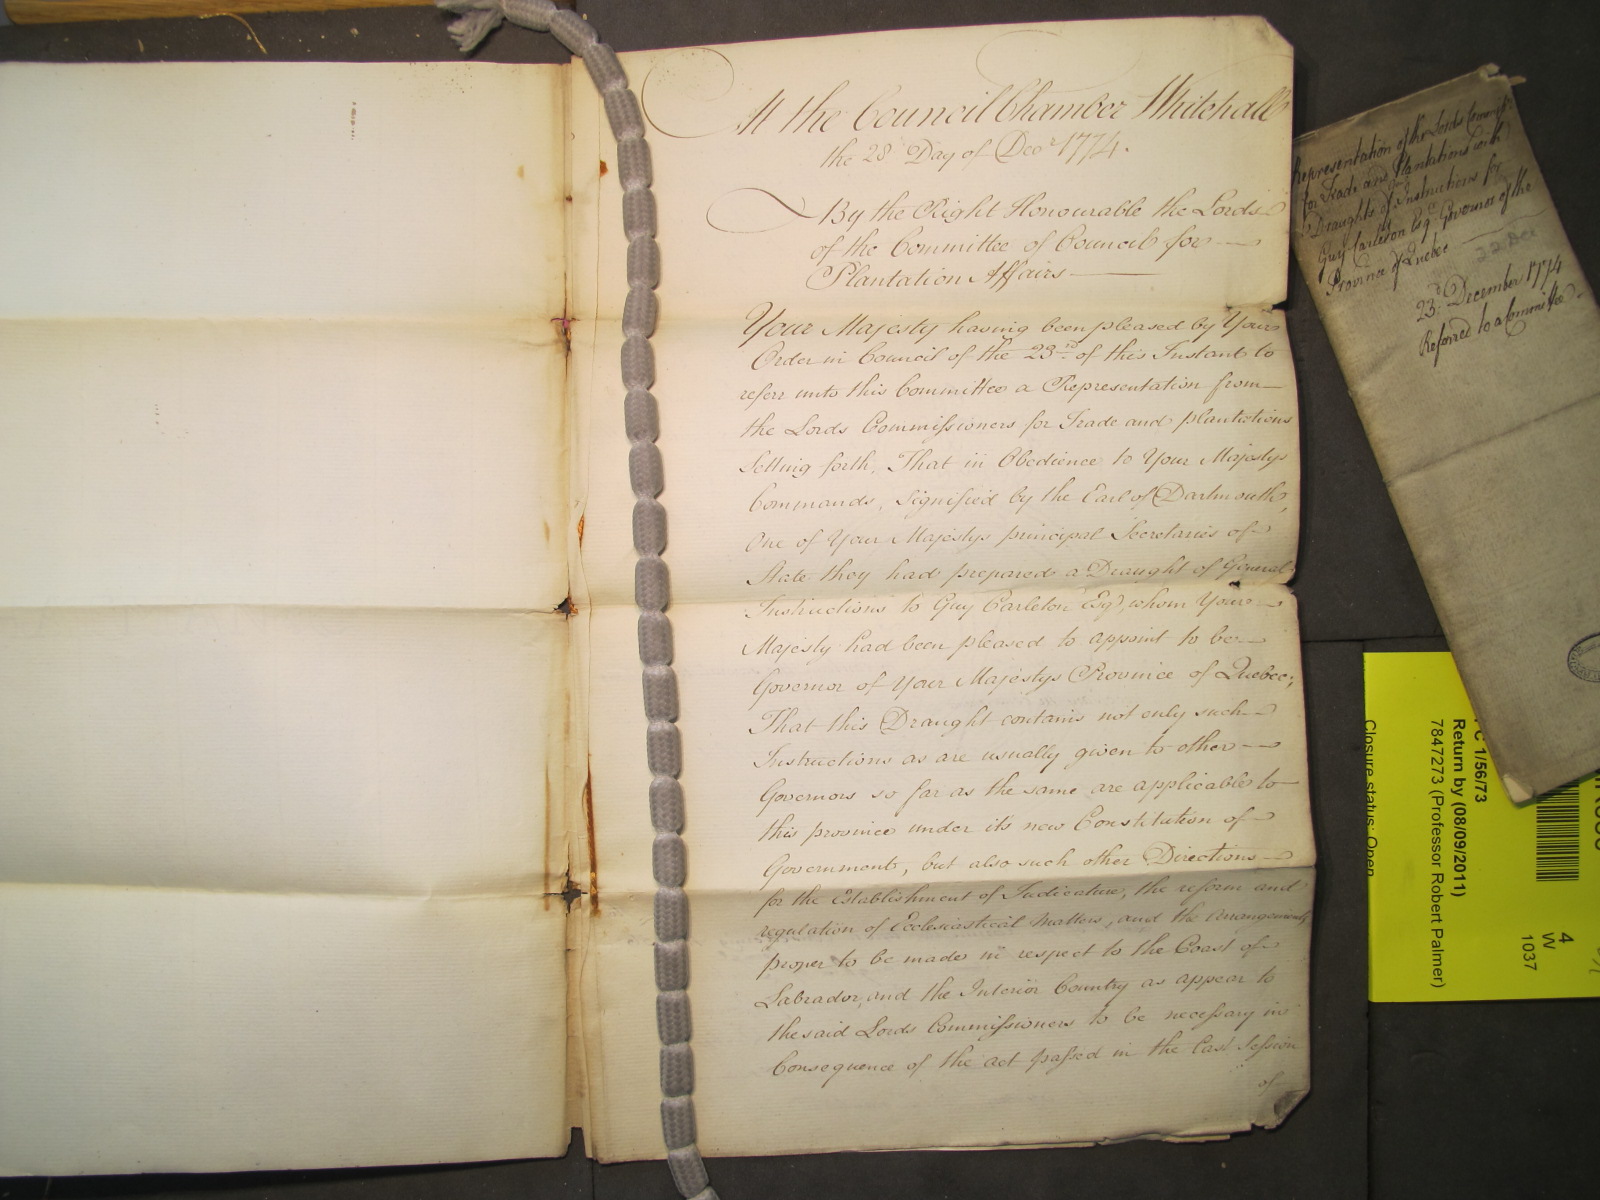 At the Council Chamber Whitehall
the 28th Day of Decr 1774.
By the Right Honourable the Lords
of the Committee of Council for
Plantation Affairs
Your Majesty having been pleased by Your
Order in Council of the 23rd of this Instant to
referr unto this Committee a Representation from
the Lords Commissioners for Trade and plantations
Setting forth, That in Obedience to Your Majestys
Commands, signified by the Earl of Dartmouth,
One of Your Majestys principal Secretaries of
State they had prepared a Draught of General
Instructions to Guy Carleton Esqr, whom Your
Majesty had been pleased to appoint to be
Governor of Your Majestys Province of Quebec;
That this Draught contains not only such
Instructions as are usually given to other
Governors so far as the same are applicable to
this province under it's new Constitution of
Government, but also such other Directions
for the Establishment of Judicature, the reform and
regulation of Ecclesiastical Matters, and the Arrangements
proper to be made in respect to the Coast of
Labrador, and the Interior Country as appear to
the said Lords Commissioners to be necessary in
Consequence of the act passed in the last Session
of
Representation of the Lords Commrs
for Trade and Plantations with
Draughts of Instructions for
Guy Carleton Esqr Governor of the
Province of Quebec
22 Dec
23d December 1774
Referred to a Committee
PC 1/56/73
Return by (08/09/2011)
7847273 (Professor Robert Palmer)
Closure status: Open
4
W
1037